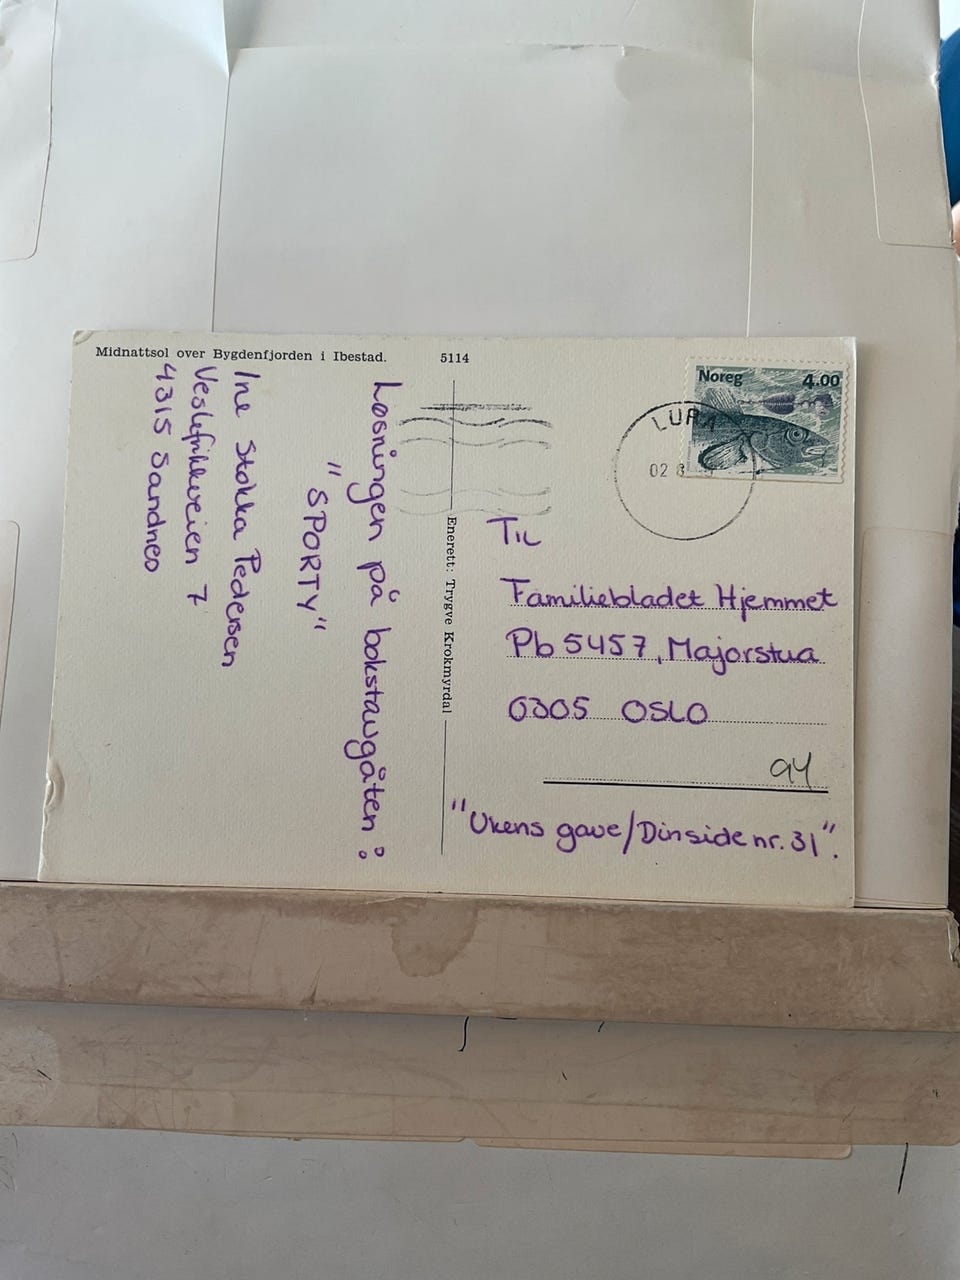 Midnattsol over Bygdenfjorden i Ibestad.
5114
Løsningen på bokstavgåten:
"SPORTY"
Ine Stokka Pedersen
Veslefrikkveien 7
4315 Sandnes
Enerett: Trygve Krokmyrdal
Noreg 4.00
LURA
02 8
Til
Familiebladet Hjemmet
Pb 5457, Majorstua
0305 OSLO
94
"Ukens gave/Dinside nr. 31".